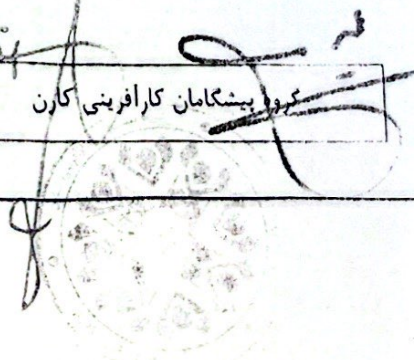 گروه پیشگامان کارآفرینی کارن